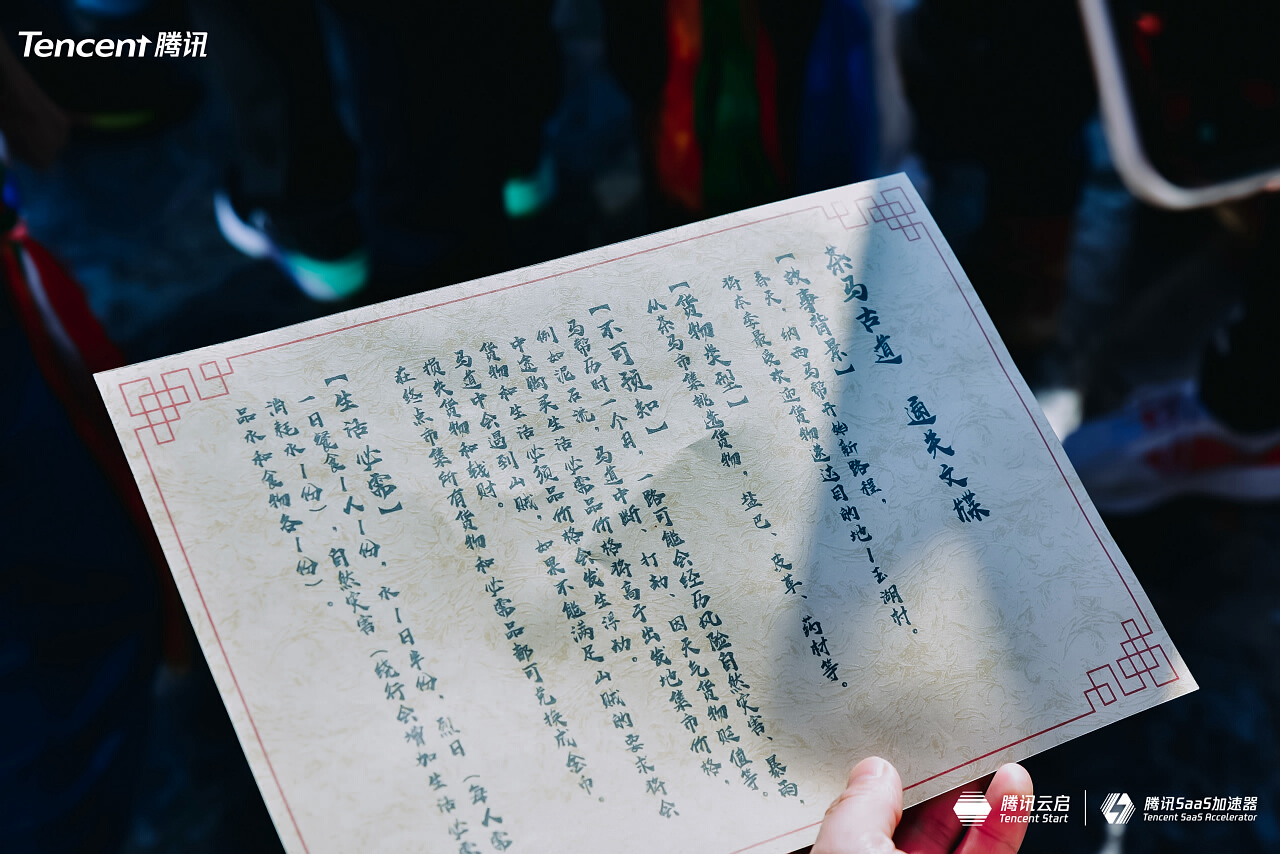 Tencent 腾讯
茶马古道 通关文牒
【故事背景】
春天,纳西马帮开始新路程,
将本季最受欢迎货物送达目的地—玉湖村。
【货物类型】
从茶马市集挑选货物,盐巴、皮革、药材等。
【不可预知】
马帮历时一个月,一路可能会经历风险自然灾害、暴雨,
例如泥石流,马道中断,打劫,因天气货物贬值等。
中途购买生活必需品价格将高于出发地集市价格,
货物和生活必须品价格会发生浮动。
马道中会遇到山贼,如果不能满足山贼的要求将会
损失货物和钱财。
在终点市集所有货物和必需品都可兑换成金币。
【生活必需】
一日餐食一人一份,水一日半份,烈日(每人需
消耗水一份),自然灾害(绕行会增加生活必需
品水和食物各一份)。
腾讯云启
Tencent Start
腾讯SaaS加速器
Tencent SaaS Accelerator